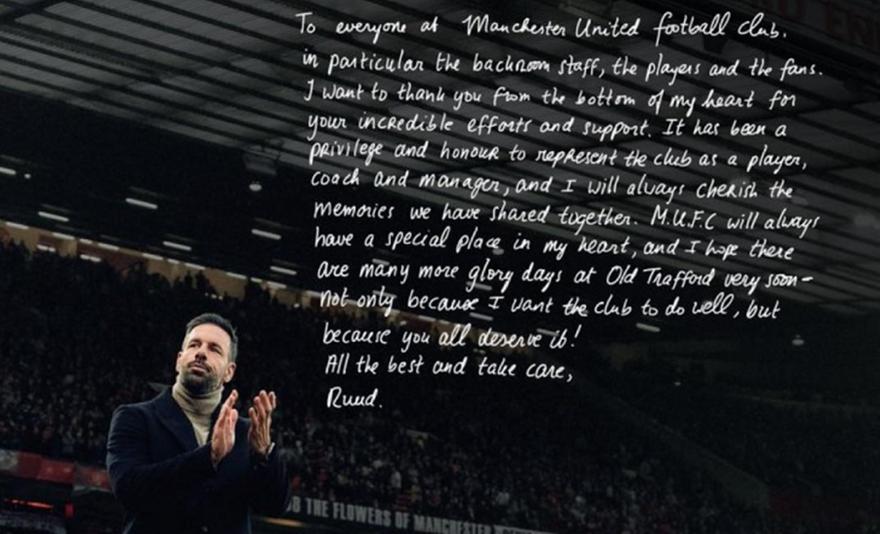 To everyone at Manchester United football club.
in particular the backroom staff, the players and the fans.
I want to thank you from the bottom of my heart for
your incredible efforts and support. It has been a
privilege and honour to represent the club as a player,
coach and manager, and I will always cherish the
memories we have shared together. M.U.F.C will always
have a special place in my heart, and I hope there
are many more glory days at Old Trafford very soon-
not only because I want the club to do well, but
because you all deserve it!
All the best and take care,
Ruud.
THE FLOWERS OF MANCHESTER